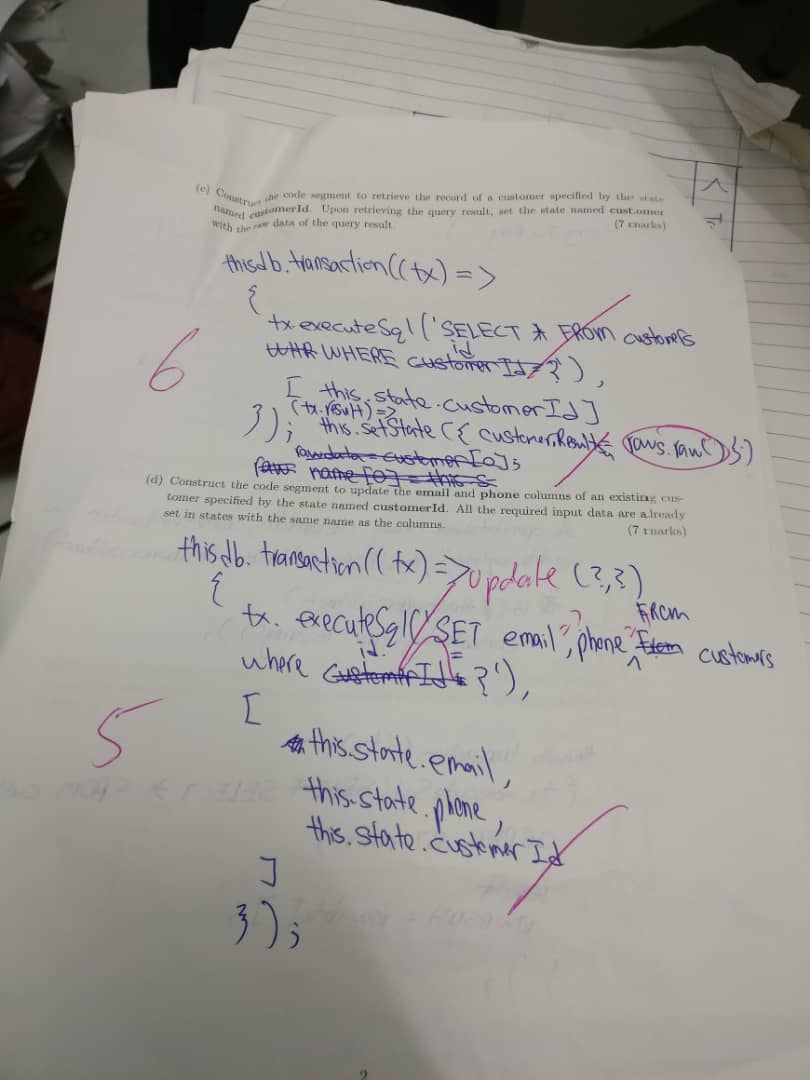 (c) Construct the code segment to retrieve the record of a customer specified by the state
named customerId. Upon retrieving the query result, set the state named customer
with the raw data of the query result. (7 marks)
thisdb.transaction((tx) =>
{
tx.executeSql('SELECT * FROM customers
WHR WHERE id
customerId = ?'),
6
[ this.state.customerId]
(tx.result) =>
}); this.setState({ customer.Results= rows.raw() })
rawdata = customer[0];
raw name [0] = this.s
(d) Construct the code segment to update the email and phone columns of an existing cus-
tomer specified by the state named customerId. All the required input data are already
set in states with the same name as the columns. (7 marks)
thisdb.transaction((tx) => update (?,?)
{
FROM
tx.executeSql('SET email?, phone? From customers
id =
where customerId = ?'),
[
5
this.state.email,
this.state.phone,
this.state.customerId
]
});
2